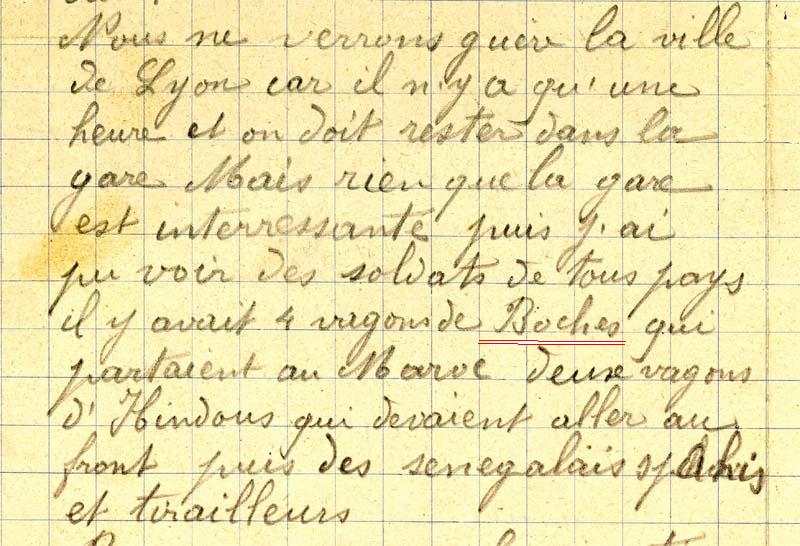 Nous ne verrons guère la ville
de Lyon car il n'y a qu'une
heure et on doit rester dans la
gare Mais rien que la gare
est interressante puis j'ai
pu voir des soldats de tous pays
il y avait 4 vagons de Boches qui
partaient au Maroc deux vagons
d'Hindous qui devaient aller au
front puis des senegalais spahis
et tirailleurs